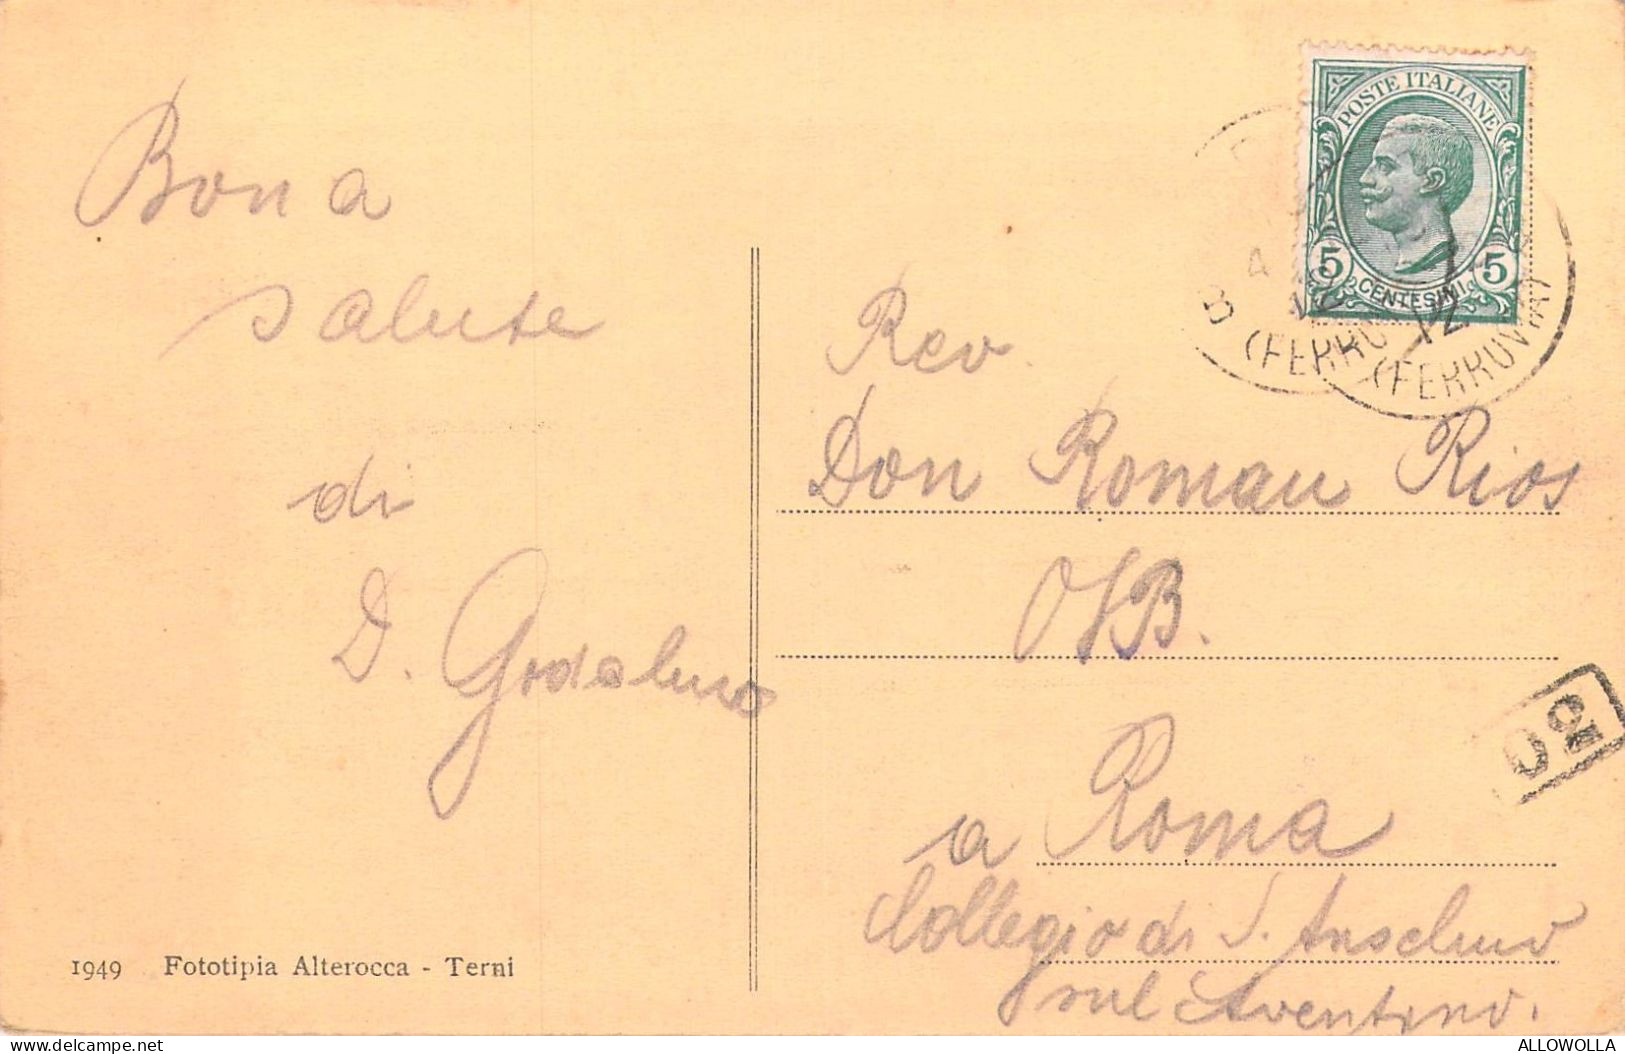 Bona
salute
di
D. Godaluso
1949 Fototipia Alterocca - Terni
POSTE ITALIANE
5 CENTESIMI 5
(FERRO
(FERROVIA)
12
Rev
Don Roman Rios
OSB.
a Roma
Collegio di S. Anselmo
sul Aventino.
ALLOWOLLA